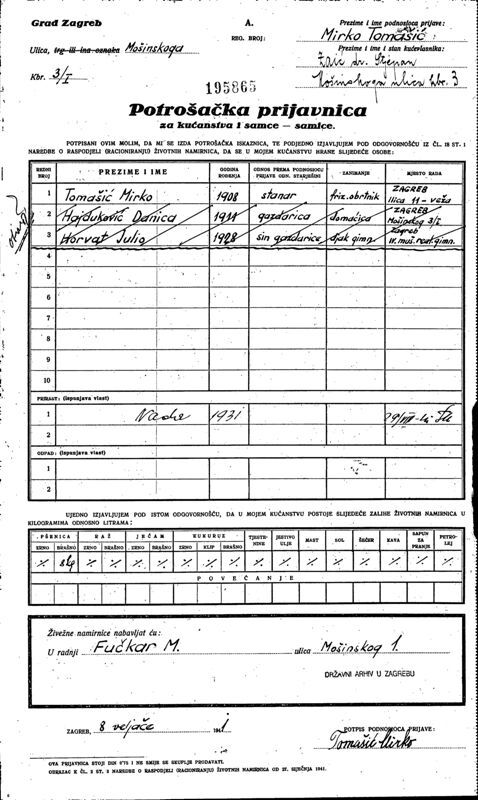 Grad Zagreb
A.
REG. BROJ:
Prezime i ime podnosioca prijave:
Mirko Tomašić
Ulica, trg ili ina oznaka Mošinskoga
Prezime i ime i stan kućevlasnika:
dr. Stjepan
Kbr. 3/I
Mošinskoga ulica kbr. 3
195865
Potrošačka prijavnica
za kućanstva i samce — samice.
POTPISANI OVIM MOLIM, DA MI SE IZDA POTROŠAČKA ISKAZNICA, TE PODJEDNO IZJAVLJUJEM POD ODGOVORNOŠĆU IZ ČL. 18 ST. 1
NAREDBE O RASPODJELI (RACIONIRANJU) ŽIVOTNIH NAMIRNICA, DA SE U MOJEM KUĆANSTVU HRANE SLIJEDEĆE OSOBE:
REDNI BROJ PREZIME I IME GODINA ROĐENJA ODNOS PREMA PODNOSIOCU PRIJAVE ODN. STARJEŠINI ZANIMANJE MJESTO RADA
1 Tomašić Mirko 1908 stanar friz. obrtnik ZAGREB Ilica 11 - veža
2 Hajduković Danica 1911 gazdarica domaćica ZAGREB Mošinskog 3/I
3 Horvat Julio 1928 sin gazdarice djak gimn. Zagreb IV. muš. real. gimn.
4
5
6
7
8
9
10
PRIRAST: (ispunjava vlast)
1 1931
2
OTPAD: (ispunjava vlast)
1
2
UJEDNO IZJAVLJUJEM POD ISTOM ODGOVORNOŠĆU, DA U MOJEM KUĆANSTVU POSTOJE SLIJEDEĆE ZALIHE ŽIVOTNIH NAMIRNICA U
KILOGRAMIMA ODNOSNO LITRAMA:
PŠENICA RAŽ JEČAM KUKURUZ TJESTENINE JESTIVO ULJE MAST SOL ŠEĆER KAVA SAPUN ZA PRANJE PETROLEJ
ZRNO BRAŠNO ZRNO BRAŠNO ZRNO BRAŠNO ZRNO KLIP BRAŠNO
% 8kg % % % % % % % % % % % % % % %
POVEĆANJE
Živežne namirnice nabavljat ću:
U radnji Fučkar M. ulica Mošinskog 1.
DRŽAVNI ARHIV U ZAGREBU
ZAGREB, 8 veljače 1941
POTPIS PODNOSIOCA PRIJAVE:
Tomašić Mirko
OVA PRIJAVNICA STOJI DIN 0'75 I NE SMIJE SE SKUPLJE PRODAVATI.
OBRAZAC K ČL. 2 ST. 2 NAREDBE O RASPODJELI (RACIONIRANJU) ŽIVOTNIH NAMIRNICA OD 27. SIJEČNJA 1941.